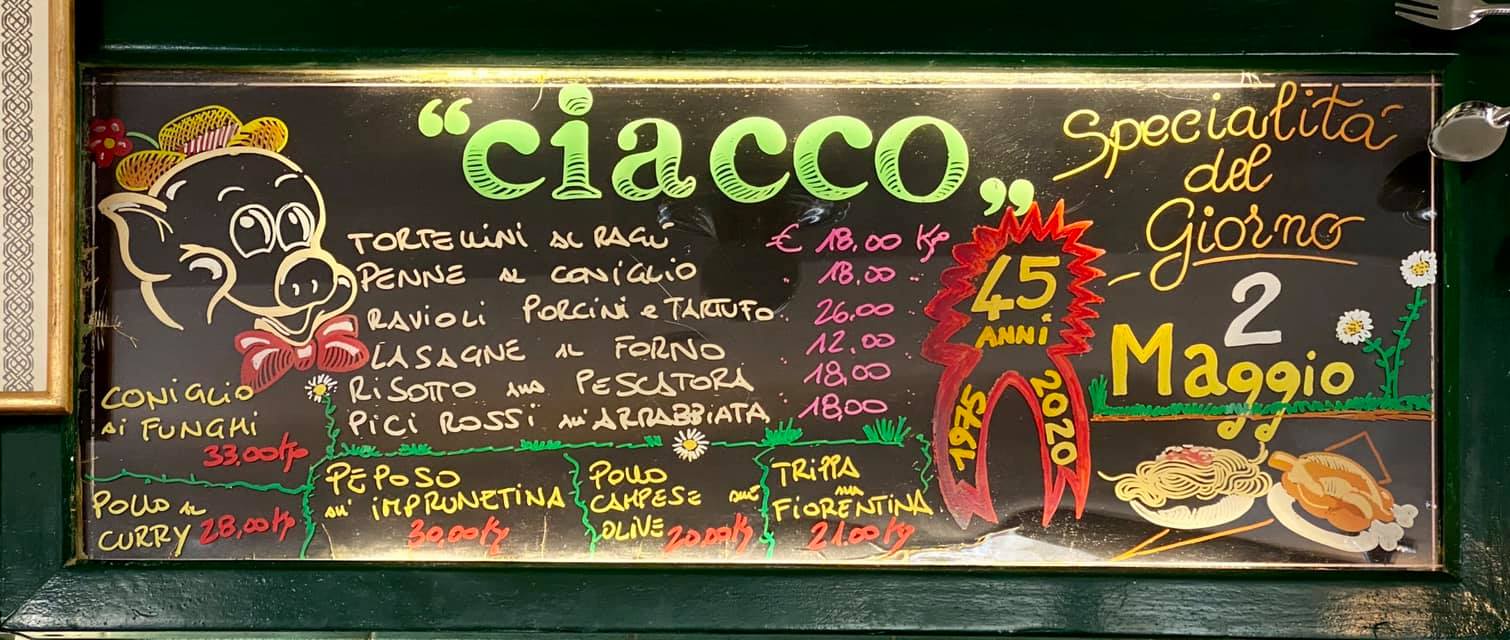 “ciacco”
Specialità
del
Giorno
2
Maggio
TORTELLINI AL RAGÙ € 18,00 Kg
PENNE AL CONIGLIO " 18,00 "
RAVIOLI PORCINI e TARTUFO " 26,00
LASAGNE AL FORNO " 12,00 "
RISOTTO ALLA PESCATORA " 18,00 "
PICI ROSSI ALL'ARRABBIATA " 18,00
45
ANNI
1975
2020
CONIGLIO
AI FUNGHI
33,00 Kg
POLLO AL
CURRY 28,00 Kg
PEPOSO
ALL' IMPRUNETINA
30,00 Kg
POLLO
CAMPESE ALLE
OLIVE 20,00 Kg
TRIPPA
ALLA
FIORENTINA
21,00 Kg